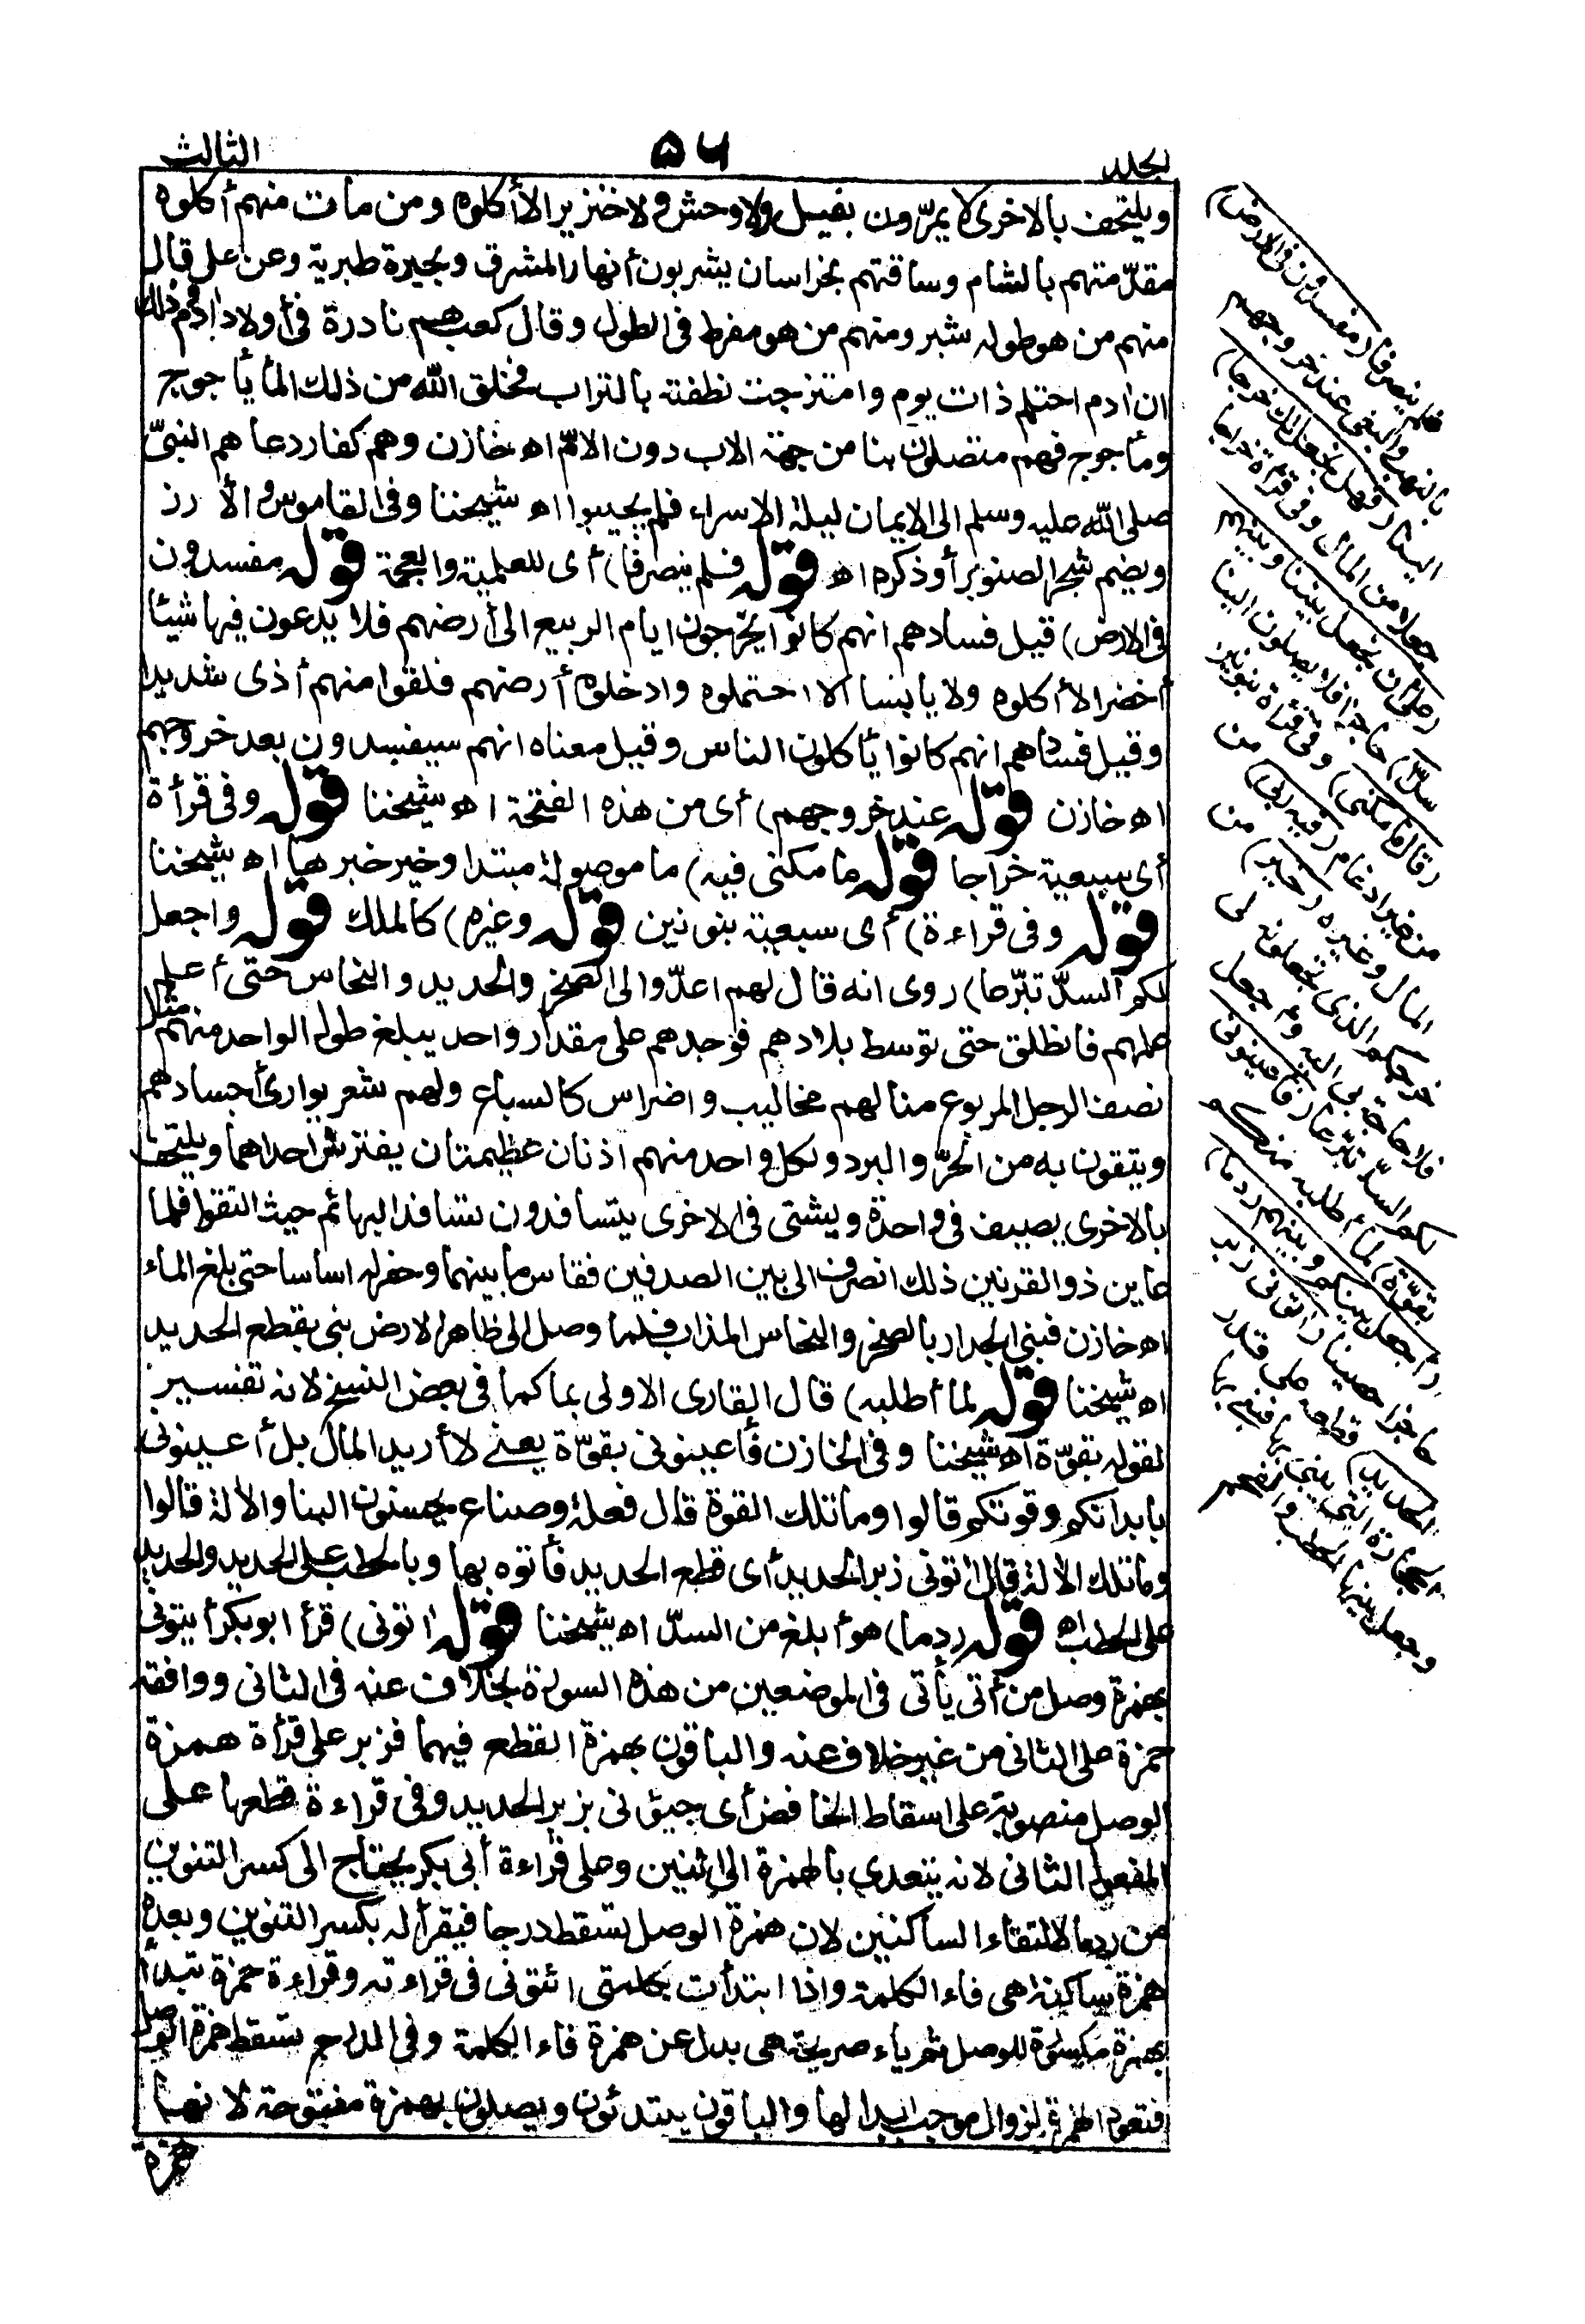 الجلد
٥٦
الثالث
ويلتحف بالاخرى لا يمرّون بفيل ولا وحش ولا خنزير الا أكلوه ومن مات منهم أكلوه
مقدّمتهم بالشام وساقتهم بخراسان يشربون أنهار المشرق وبحيرة طبرية وعن على قال
منهم من هو طوله شبر ومنهم من هو مفرط فى الطول وقال كعب هم نادرة فى أولاد ادم وذلك
ان ادم احتلم ذات يوم وامتزجت نطفته بالتراب فخلق الله من ذلك الماء ياجوج
وماجوج فهم متصلون بنا من جهة الاب دون الامّ اه خازن وهم كفار دعاهم النبىّ
صلى الله عليه وسلم الى الايمان ليلة الاسراء فلم يجيبوا اه شيخنا وفى القاموس والأرز
ويضم شجر الصنوبر أو ذكره اه قوله فلم ينصرفا) أى للعلمية والعجمة قوله مفسدون
فى الارض) قيل فسادهم انهم كانوا يخرجون ايام الربيع الى أرضهم فلا يدعون فيها شيئا
أخضر الا أكلوه ولا يابسا الا احتملوه وادخلوه أرضهم فلقوا منهم أذى شديدا
وقيل فسادهم انهم كانوا يأكلون الناس وقيل معناه انهم سيفسدون بعد خروجهم
اه خازن قوله عند خروجهم) أى من هذه الفتحة اه شيخنا قوله وفى قرأة
أى سبعية خراجا قوله ما مكنى فيه) ما موصولة مبتدا وخير خبرها اه شيخنا
قوله وفى قراءة) أى سبعية بنونين قوله وغيره) كالملك قوله واجعل
لكم السدّ تبرّعا) روى انه قال لهم اعدّوا الى الصخر والحديد والنحاس حتى أعلم
علمهم فانطلق حتى توسط بلادهم فوجدهم على مقدار واحد يبلغ طول الواحد منهم مثل
نصف الرجل المربوع منا لهم مخاليب واضراس كالسباع ولهم شعر يوارى أجسادهم
ويتقون به من الحرّ والبرد ولكل واحد منهم اذنان عظيمتان يفترش احداهما ويلتحف
بالاخرى يصيف فى واحدة ويشتى فى الاخرى يتسافدون تسافد البهائم حيث التقوا فلما
عاين ذو القرنين ذلك انصرف الى بين الصدفين فقاس ما بينهما وحفر له اساسا حتى بلغ الماء
اه خازن فبنى الجدار بالصخر والنحاس المذاب فلما وصل الى ظاهر الارض بنى بقطع الحديد
اه شيخنا قوله لما أطلبه) قال القارى الاولى بما كما فى بعض النسخ لانه تفسير
لقوله بقوّة اه شيخنا وفى الخازن فأعينونى بقوّة يعنى لا أريد المال بل أعينونى
بابدانكم وقوتكم قالوا وما تلك القوة قال فعلة وصناع يحسنون البنا والالة قالوا
وما تلك الالة قال اتونى زبر الحديد أى قطع الحديد فأتوه بها وبالحطب على الحديد والحديد
على الحطب اه قوله ردما) هو أبلغ من السدّ اه شيخنا قوله اتونى) قرأ ابو بكر أيتونى
بهمزة وصل من أتى يأتى فى الموضعين من هذه السورة بخلاف عنه فى الثانى ووافقه
حمزة على الثانى من غير خلاف عنه والباقون بهمزة القطع فيهما فزبر على قرأة همزة
الوصل منصوبة على اسقاط الخافض أى جيؤنى بزبر الحديد وفى قراءة قطعها على
المفعول الثانى لانه يتعدى بالهمزة الى اثنين وعلى قراءة أبى بكر يحتاج الى كسر التنوين
من ردما لالتقاء الساكنين لان همزة الوصل تسقط درجا فيقرأ له بكسر التنوين وبعده
همزة ساكنة هى فاء الكلمة واذا ابتدأت بكلمتى ائتونى فى قراءته وقراءة حمزة تبدأ
بهمزة مكسورة للوصل ثم ياء صريحة هى بدل عن همزة فاء الكلمة وفى الدرج تسقط همزة الوصل
فتعود الهمزة لزوال موجب ابدالها والباقون يبتدئون ويصلون بهمزة مفتوحة لانها
همزة
فلم ينصرفا (مفسدون فى الارض)
بالنهب والبغى عند خروجهم
الينا (فهل نجعل لك خرجا)
جعلا من المال وفى قرأة خراجا
(على أن تجعل بيننا وبينهم
سدّا) حاجزا فلا يصلون الينا
(قال ما مكنى) وفى قرأة بنونين
من غير ادغام (فيه ربى) من
المال وغيره (خير) من
خرجكم الذى تجعلونه لى
فلا حاجة بى اليه واجعل
لكم السدّ تبرّعا (فاعينونى
بقوّة) لما اطلبه منكم
(اجعل بينكم وبينهم ردما)
حاجزا حصينا (اتونى زبر
الحديد) قطعه على قدر
الحجارة التى يبنى بها فبنى بها
وجعل بينها الحطب والفحم